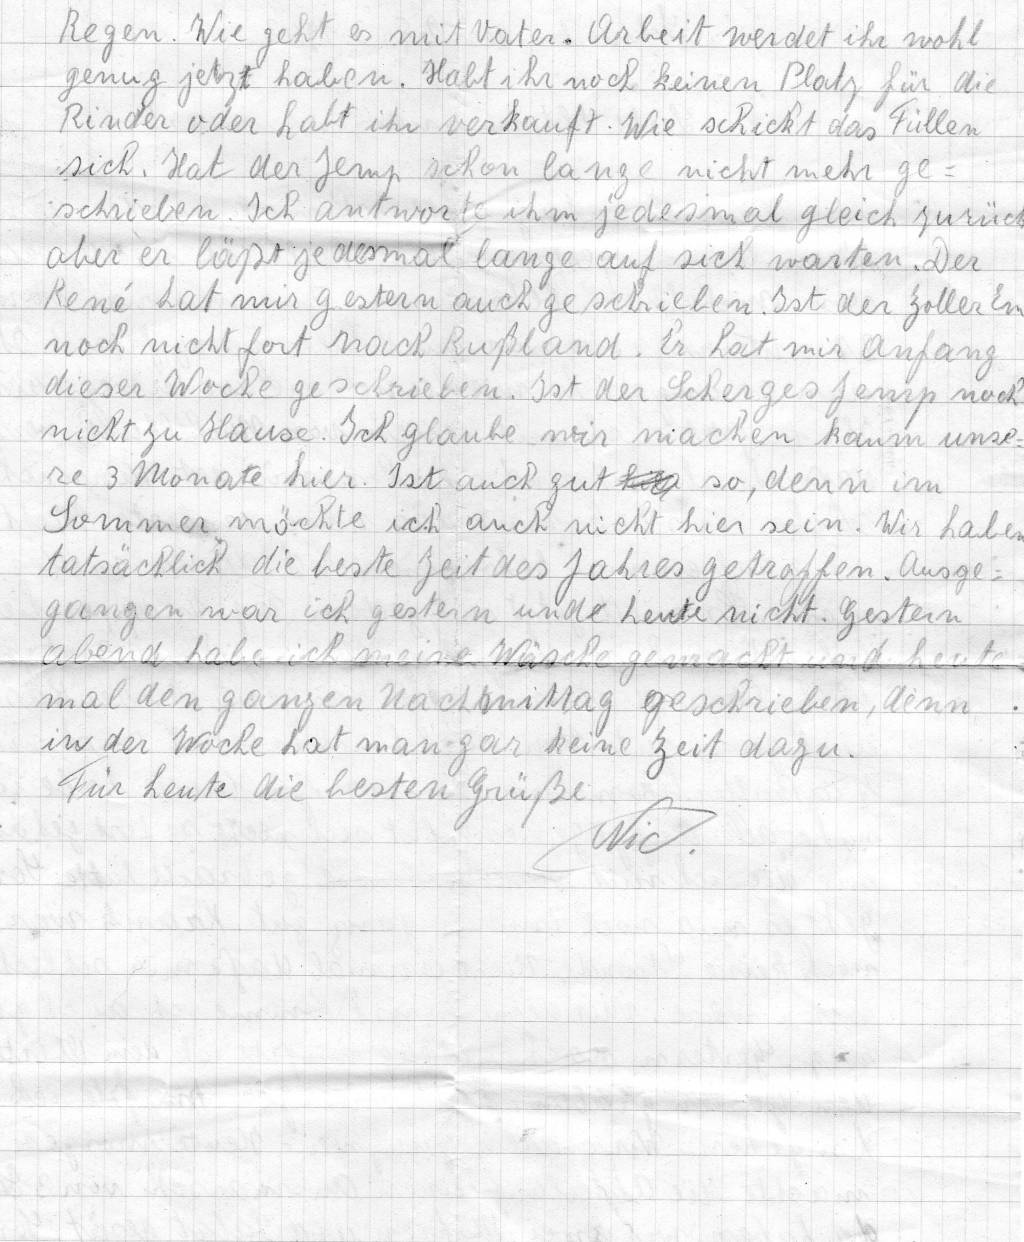 Regen. Wie geht es mit Vater. Arbeit werdet ihr wohl
genug jetzt haben. Habt ihr noch keinen Platz für die
Rinder oder habt ihr verkauft. Wie schickt das Füllen
sich. Hat der Jemp schon lange nicht mehr ge=
schrieben. Ich antworte ihm jedesmal gleich zurück
aber er läßt jedesmal lange auf sich warten. Der
René hat mir gestern auch geschrieben. Ist der Zoller Em
noch nicht fort nach Rußland. Er hat mir Anfang
dieser Woche geschrieben. Ist der Scherges Jemp noch
nicht zu Hause. Ich glaube wir machen kaum unse=
re 3 Monate hier. Ist auch gut so, denn im
Sommer möchte ich auch nicht hier sein. Wir haben
tatsächlich die beste Zeit des Jahres getroffen. Ausge=
gangen war ich gestern unde heute nicht. Gestern
abend habe ich meine Wäsche gemacht und heute
mal den ganzen Nachmittag geschrieben, denn
in der Woche hat man gar keine Zeit dazu.
Für heute die besten Grüße
Nic.